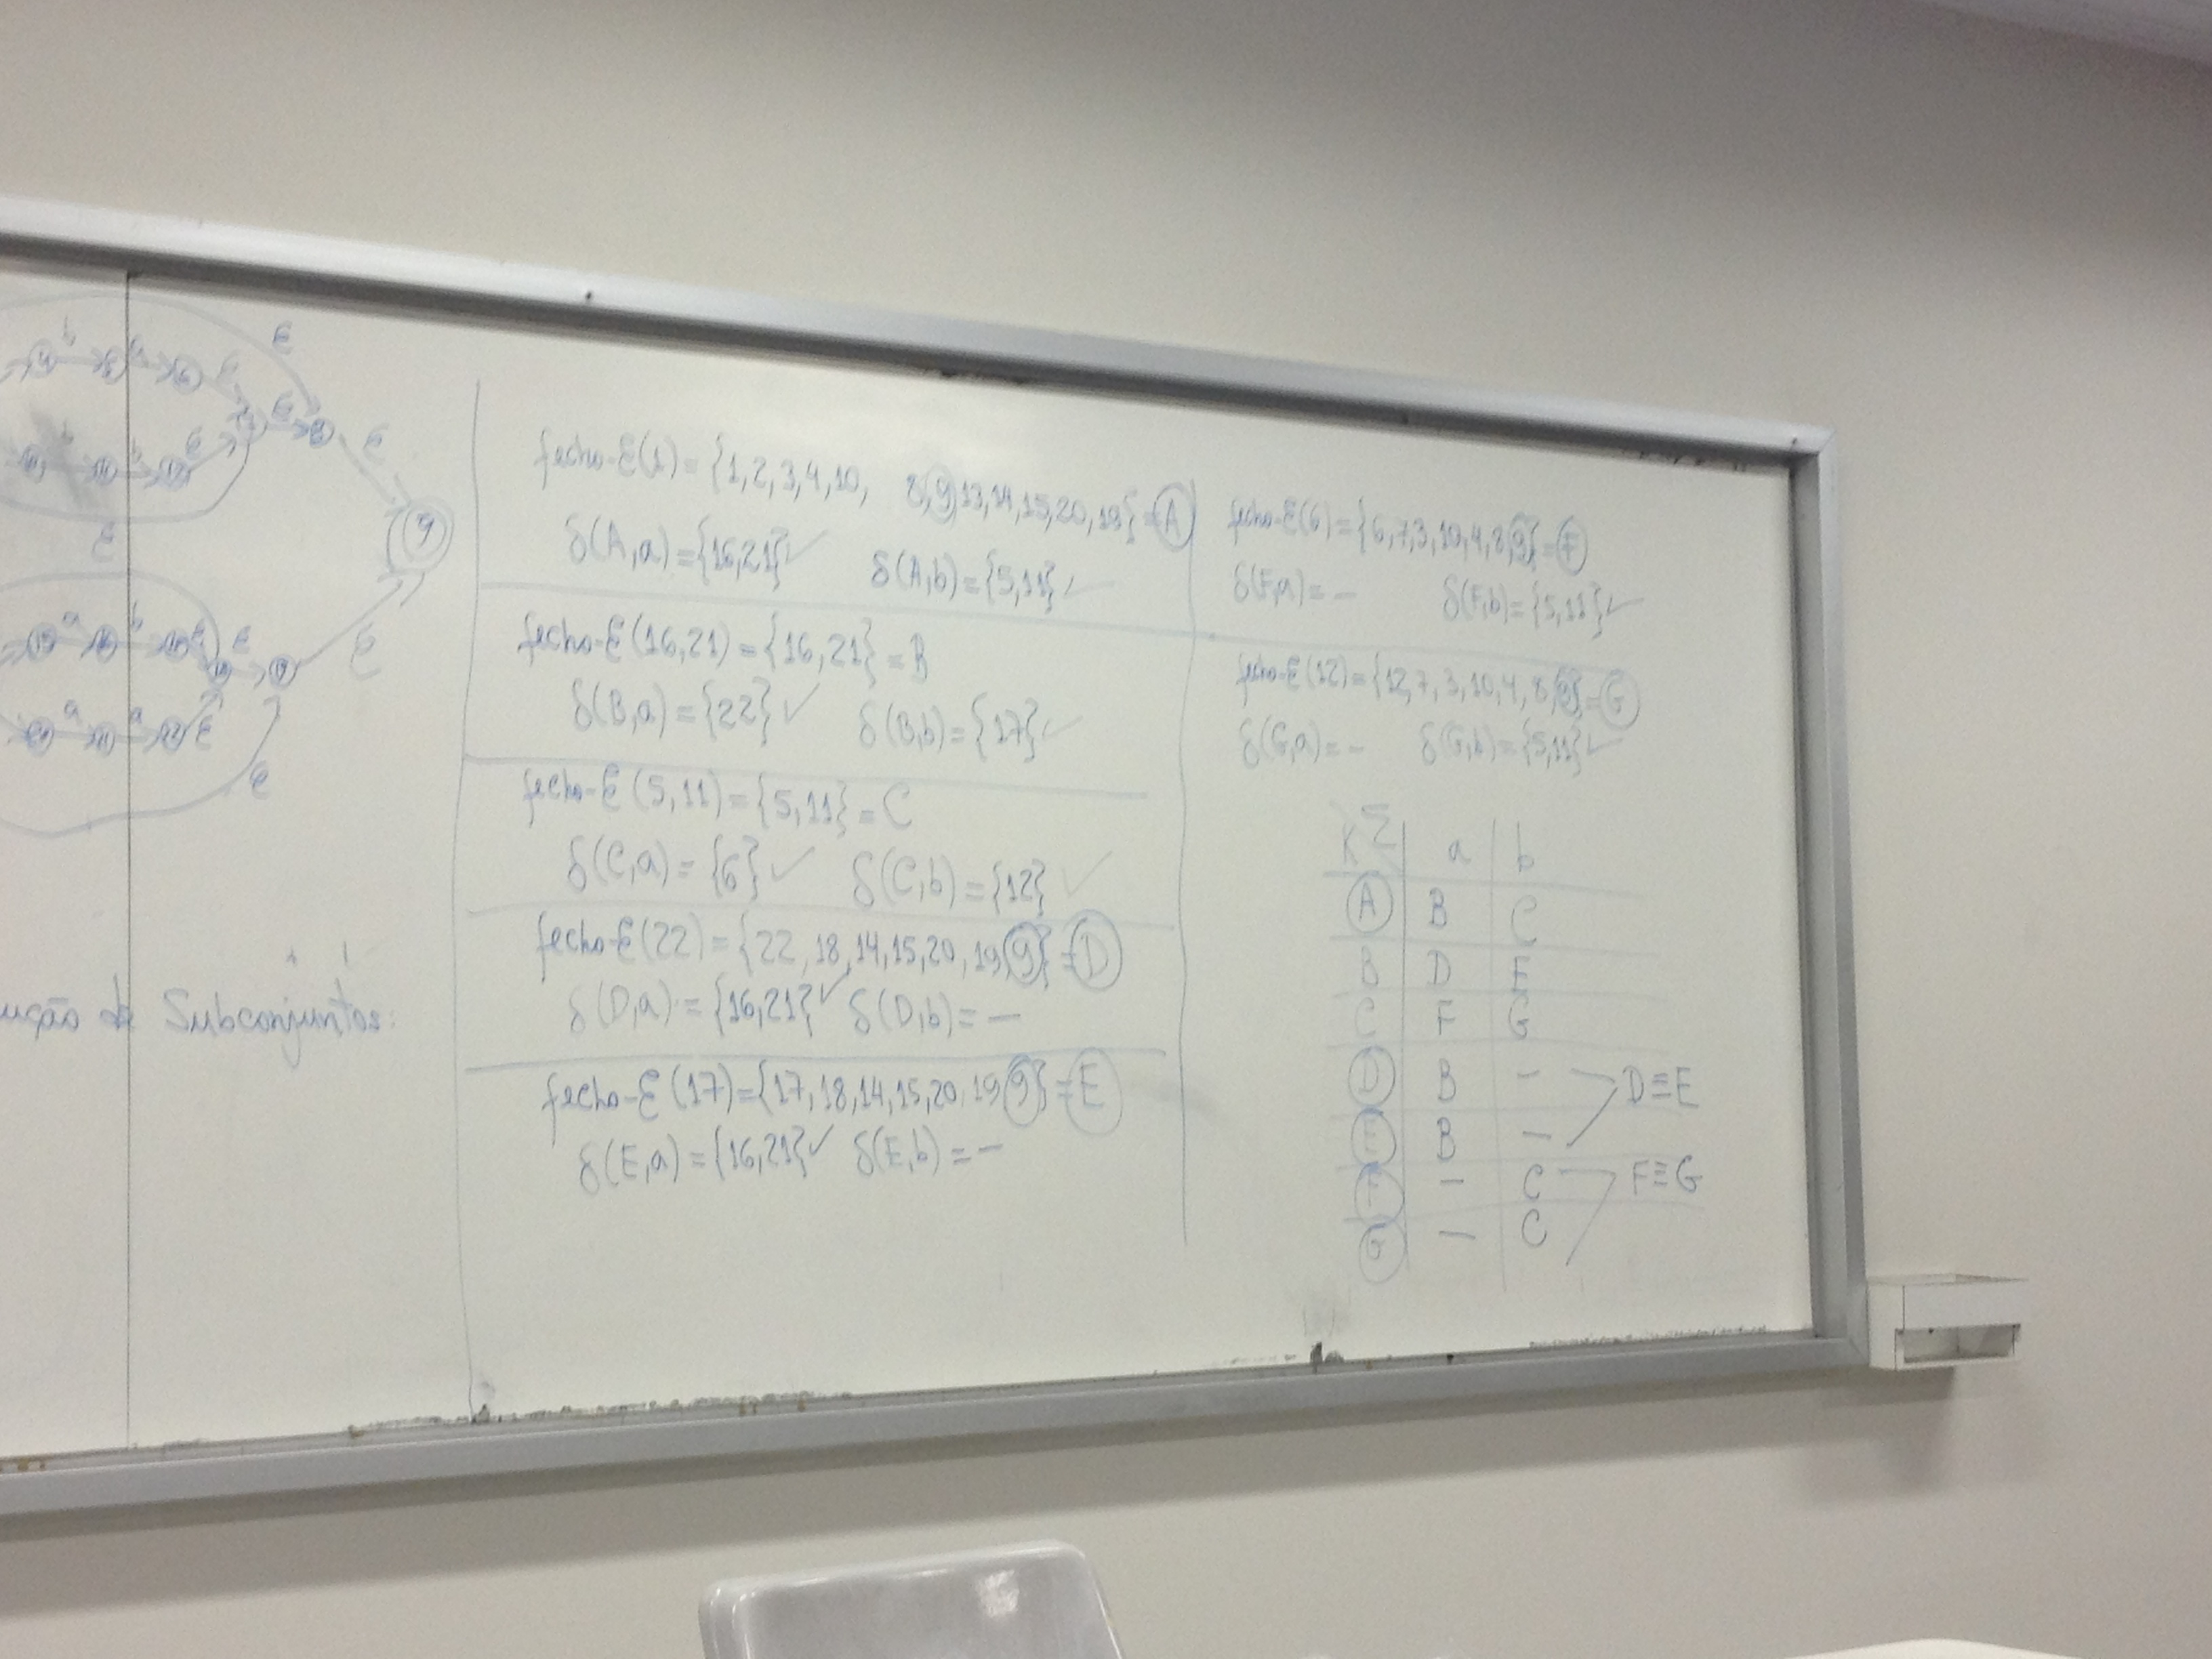 ução de Subconjuntos:
fecho-ε(1) = {1,2,3,4,10, 8,9,13,14,15,20,19} = A
δ(A,a) = {16,21} ✓ δ(A,b) = {5,11} ✓
fecho-ε(16,21) = {16,21} = B
δ(B,a) = {22} ✓ δ(B,b) = {17} ✓
fecho-ε(5,11) = {5,11} = C
δ(C,a) = {6} ✓ δ(C,b) = {12} ✓
fecho-ε(22) = {22,18,14,15,20,19,9} = D
δ(D,a) = {16,21} ✓ δ(D,b) = —
fecho-ε(17) = {17,18,14,15,20,19,9} = E
δ(E,a) = {16,21} ✓ δ(E,b) = —
fecho-ε(6) = {6,7,3,10,4,8,9} = F
δ(F,a) = — δ(F,b) = {5,11} ✓
fecho-ε(12) = {12,7,3,10,4,8,9} = G
δ(G,a) = — δ(G,b) = {5,11} ✓
K Σ a b
A B C
B D E
C F G
D B —
E B —
D≡E
F — C
G — C
F≡G